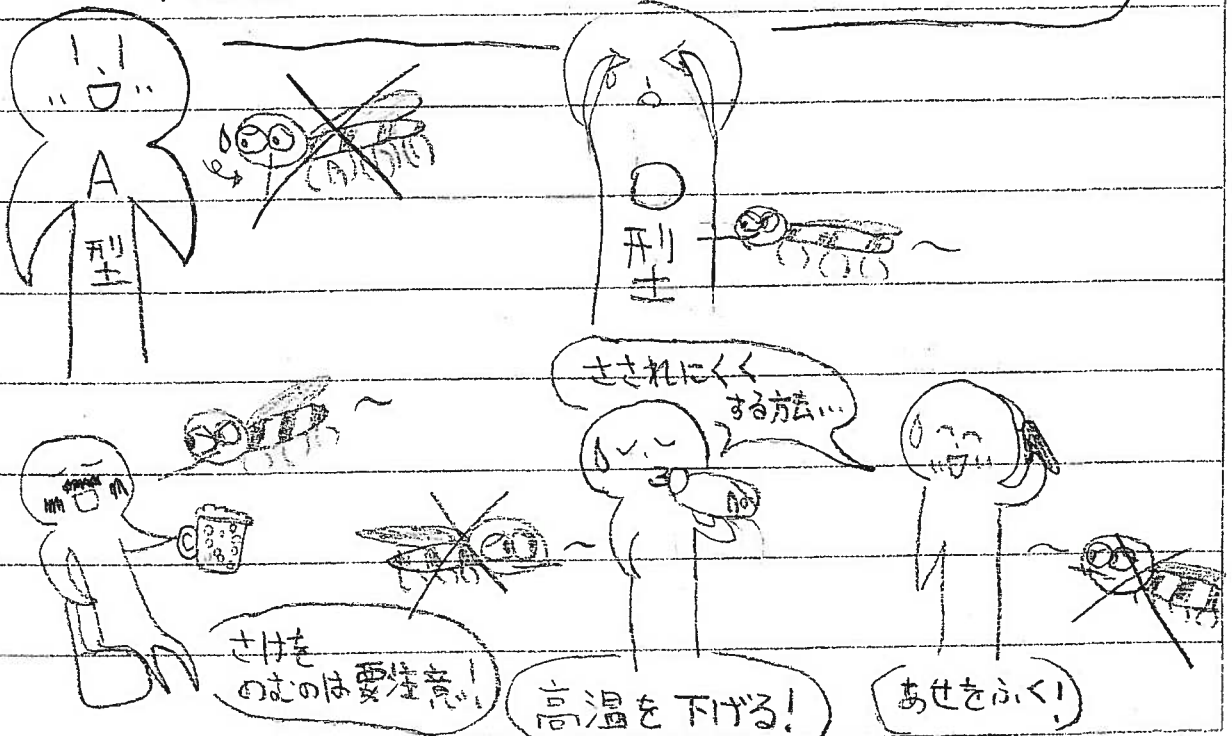 A
型
O
型
さされにくく
する方法...
さけを
のむのは要注意!
高温を下げる!
あせをふく!